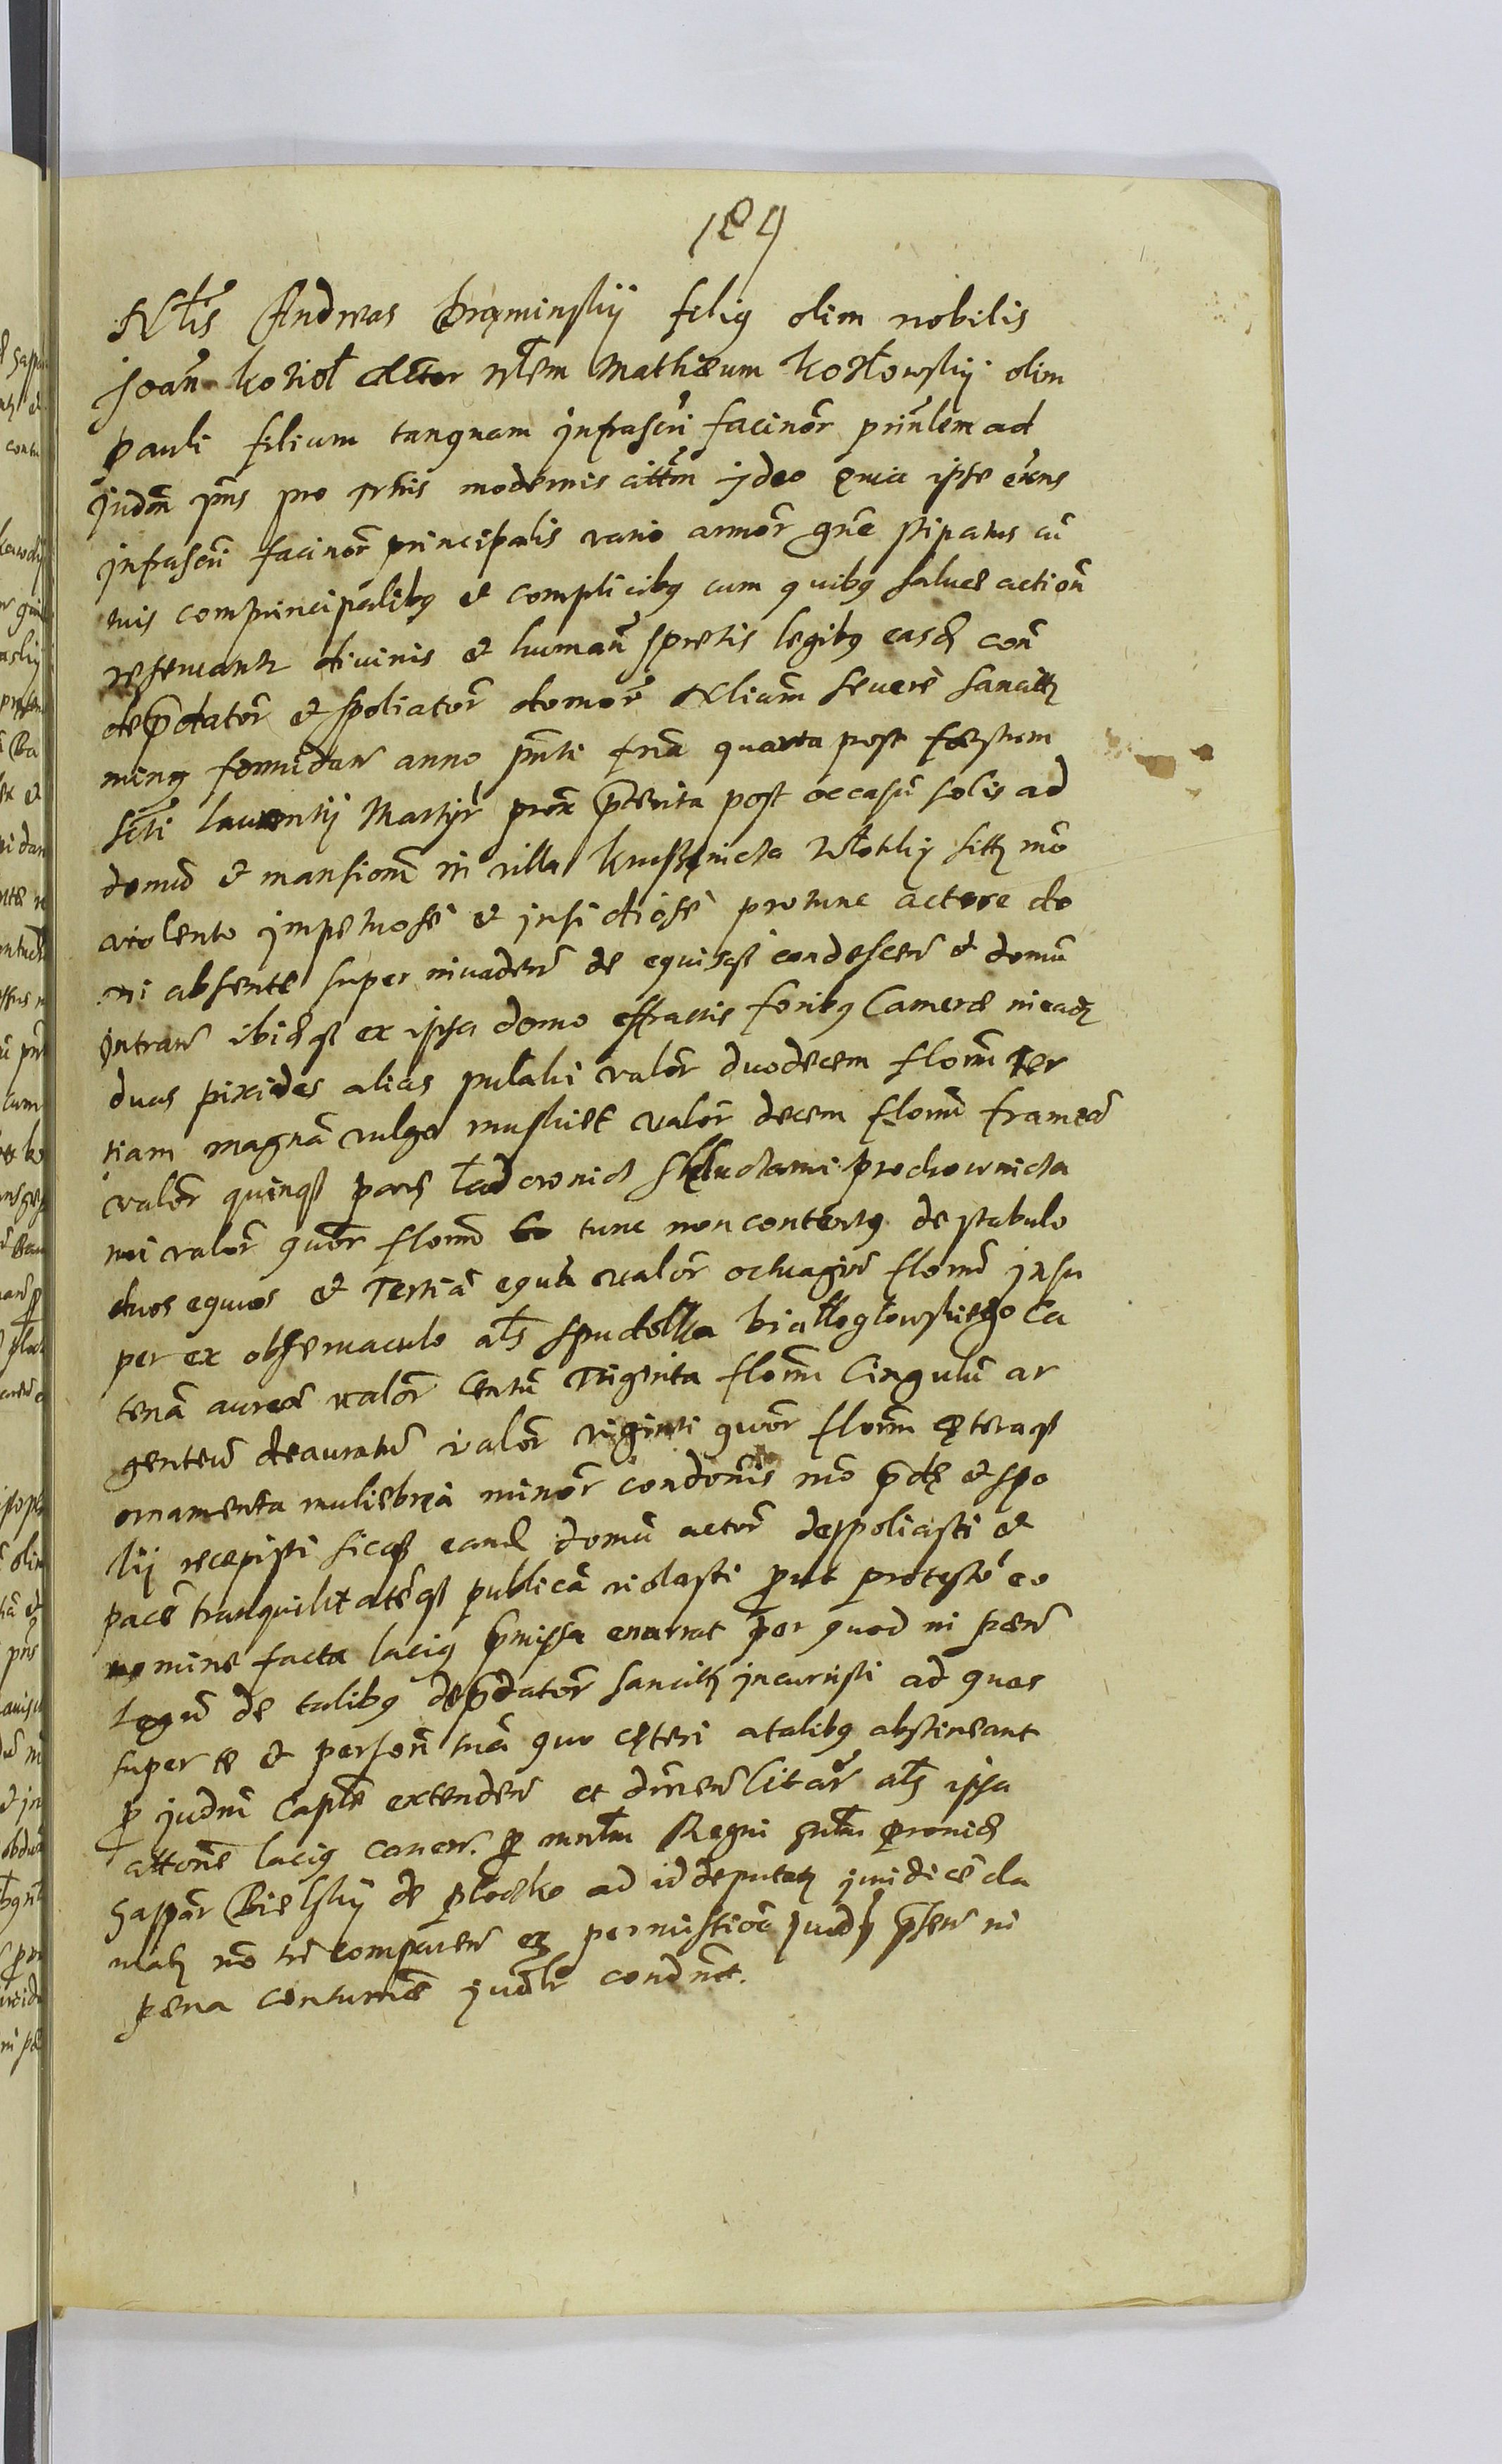 184
Nlis Andreas Brąminskij filiq olim nobilis
Joan Kozioł actor Nlem Mathæum Kozłowskij olim
Pauli filium tanquam infrascri facinor prinlem ad
judm pns pro trnis modernis cittm jdeo quia ipse exns
infrascri facinor principalis vario armor gne stipatus cu
tuis comprincipalibq et complicibq cum quibq saluæ action
reservantr divinis et human spretis legibq easq con
depdator et spoliator domor Nlium severe sancitt
minq formidan anno pnti fria quarta post fæstum
scti Laurentij Martyr prox pterita post occasu solis ad
domu et mansionem in villa Włotskij sitt mo
violento impetuose et insidiose protunc actore do
mi absente super invaden de equisq condescen et domu
intran ibidq ex ipsa domo effractis foribq Cameræ in ead
duas pixides alias pulaki valor duodecem floren ter
tiam magna vulgo musket valor decem floren frameo
valor quinq par Ładownicz prochownicza
mi valor quor floren tunc non contentq de stabulo
duos equos et Tertia equa valor octuagin floren insu
per ex observaculo als Białłogłowskiego Ca
tena aurea valor Centu Triginta floren Cingulu ar
genteu deauratu valor viginti quor floren cęteraq
ornamenta muliebria minor condonis mo pdę et spo
lij recępisti sicq eand domu actor despoliasti et
pace tranquilitateq publica violasti put protesto eo
nomine facta laciq pmissa enarrat per quod in pæn
legu de talibq depdator sancitt incurristi ad quas
super te et person tua quo cęteri a talibq abstineant
p judm Caple extenden et dirneni Citar als ipsa
attone laciq canen. p mnlm Regni gnlm pronid
Gaspar Bielskij de Płocko ad id deputat juridice cla
mat no tn comparen ex permissioe judij psen in
pæna contumæ judlr condnat.